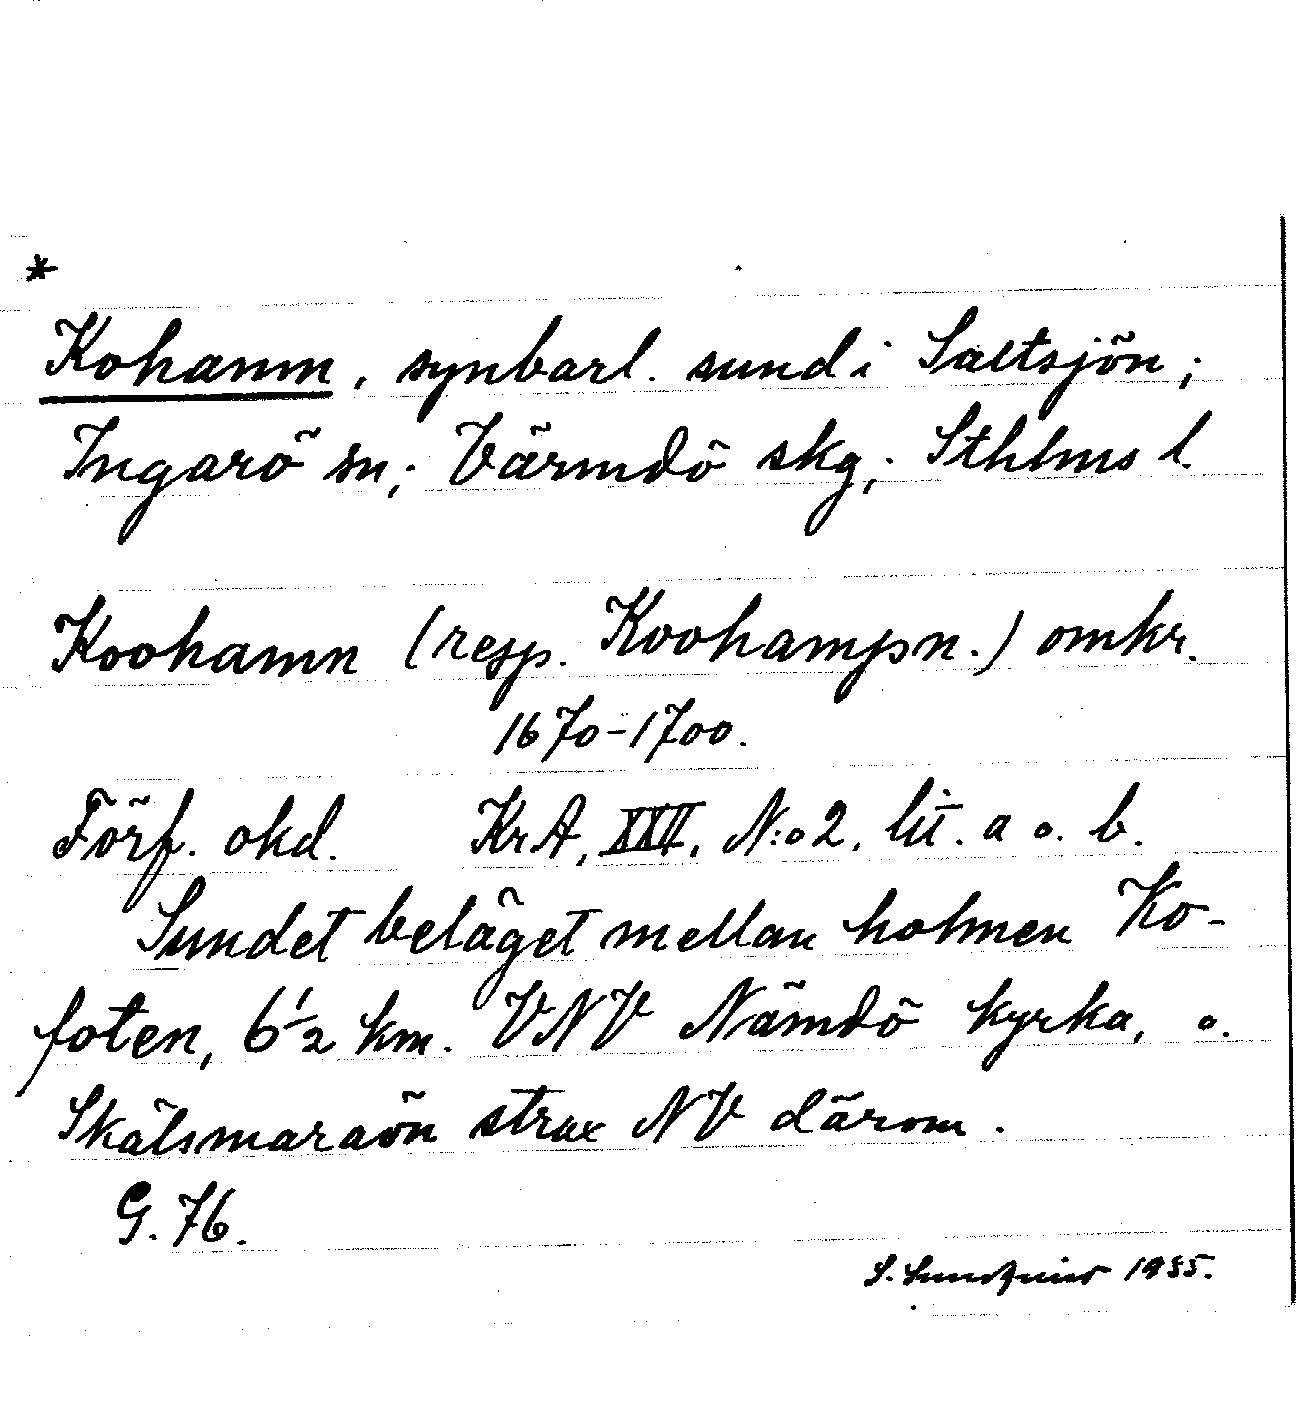 *
Kohamn, synbarl. sund i Saltsjön;
Ingarö sn; Värmdö skg; Sthlms l.
Koohamn (resp. Koohampn.) omkr.
1670-1700.
Förf. okd. KrA, XXII, N:o 2, lit. a o. b.
Sundet beläget mellan holmen Ko-
foten, 6 1/2 km. VNV Nämdö kyrka, o.
Skälsmaraön strax NV därom.
G. 76.
S. 1955.